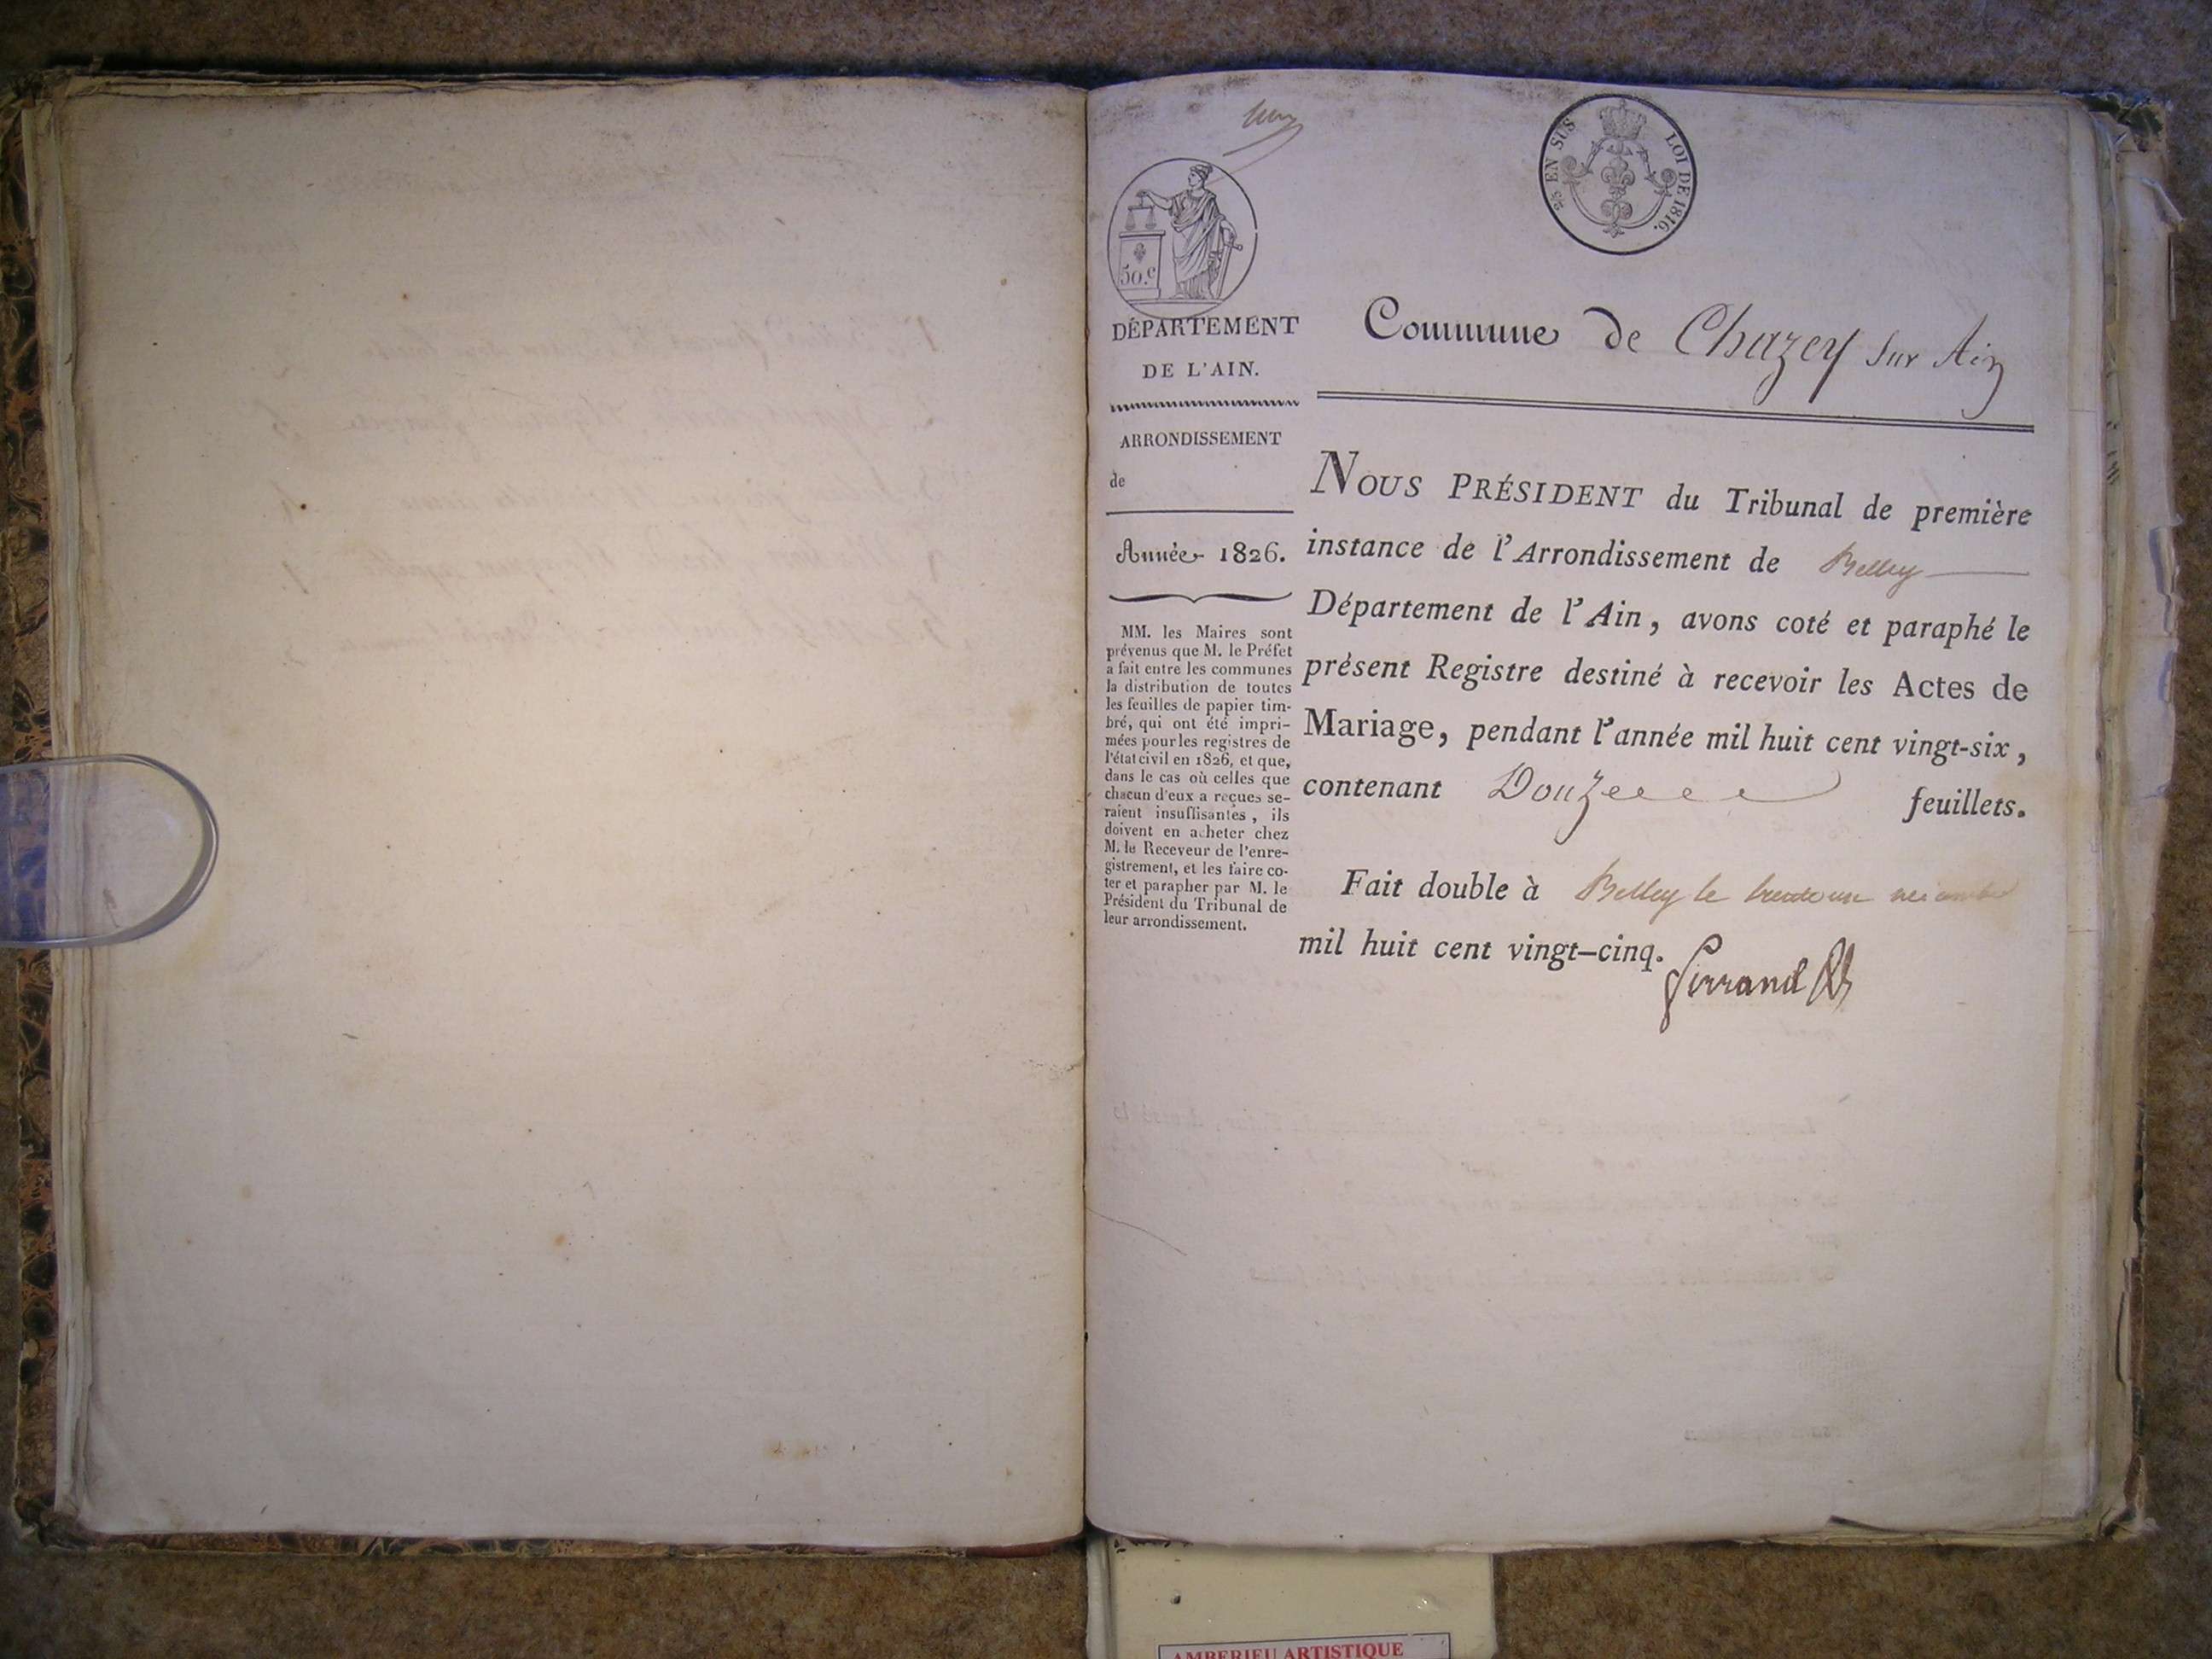 2/5 EN SUS
LOI DE 1816.
50.c
DÉPARTEMENT
DE L'AIN.
ARRONDISSEMENT
de
Année 1826.
MM. les Maires sont
prévenus que M. le Préfet
a fait entre les communes
la distribution de toutes
les feuilles de papier tim-
bré, qui ont été impri-
mées pour les registres de
l'état civil en 1826, et que,
dans le cas où celles que
chacun d'eux a reçues se-
raient insuffisantes, ils
doivent en acheter chez
M. le Receveur de l'enre-
gistrement, et les faire co-
ter et parapher par M. le
Président du Tribunal de
leur arrondissement.
Commune de Chazey sur Ain
NOUS PRÉSIDENT du Tribunal de première
instance de l'Arrondissement de Belley
Département de l'Ain, avons coté et paraphé le
présent Registre destiné à recevoir les Actes de
Mariage, pendant l'année mil huit cent vingt-six,
contenant Douze feuillets.
Fait double à Belley le
mil huit cent vingt-cinq.
AMBERIEU ARTISTIQUE